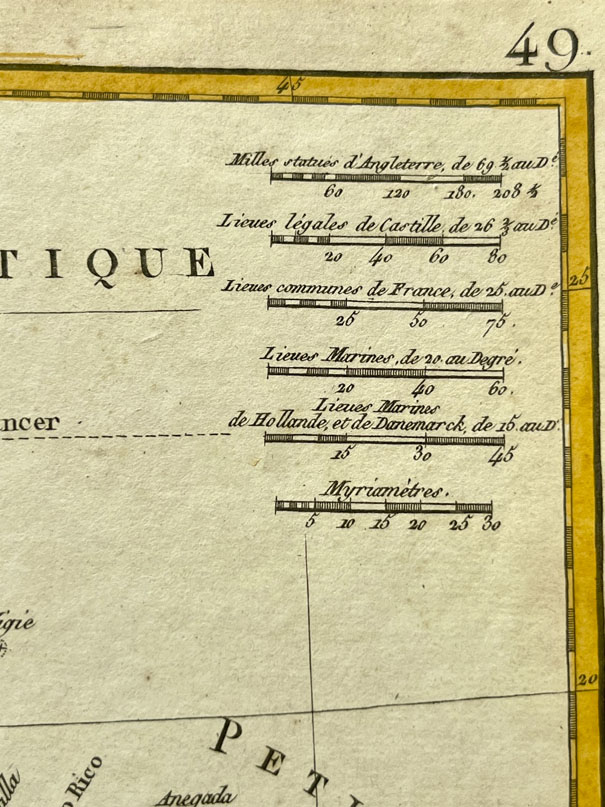 49.
45
Milles statués d'Angleterre, de 69 ½ au Dé.
60 120 180. 208 ½
Lieues légales de Castille, de 26 ⅔ au Dé
20 40 60 80
TIQUE
25
Lieues communes de France, de 25. au D.é
25 50 75.
Lieues Marines, de 20. au Degré.
20 40 60.
Lieues Marines
ncer
de Hollande, et de Danemarck, de 15. au D.
15 30 45
Myriamétres.
5 10 15 20 25 30
igie
20
PETI
o Rico
illa
Anegada